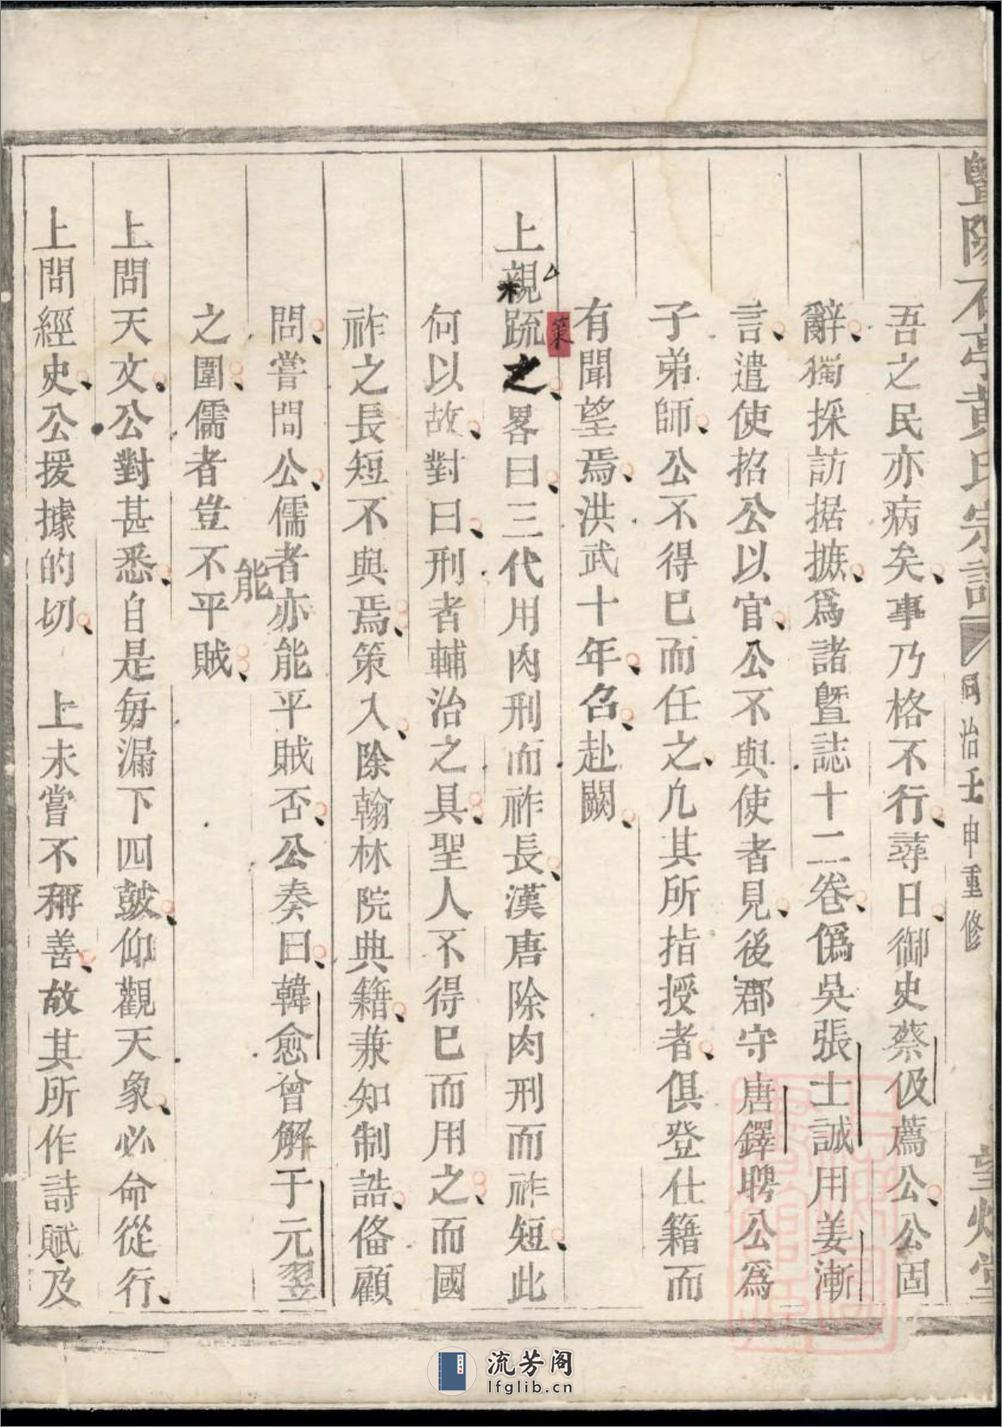 暨陽石亭黃氏宗譜 同治壬申重修 望烟堂
吾之民亦病矣事乃格不行尋日御史蔡伋薦公公固
辭獨採訪据摭爲諸暨誌十二卷僞吳張士誠用姜漸
言遣使招公以官公不與使者見後郡守唐鐸聘公爲
子弟師公不得已而任之凢其所指授者俱登仕籍而
有聞望焉洪武十年召赴闕
上親䟽之畧曰三代用肉刑而祚長漢唐除肉刑而祚短此
策
何以故對曰刑者輔治之具聖人不得已而用之而國
祚之長短不與焉策入除翰林院典籍兼知制誥俻顧
問嘗問公儒者亦能平賊否公奏曰韓愈曾解于元翌
之圍儒者豈不平賊
能
上問天文公對甚悉自是毎漏下四皷仰觀天象必命從行
上問經史公援據的切 上未嘗不稱善故其所作詩賦及
流芳阁
lfglib.cn